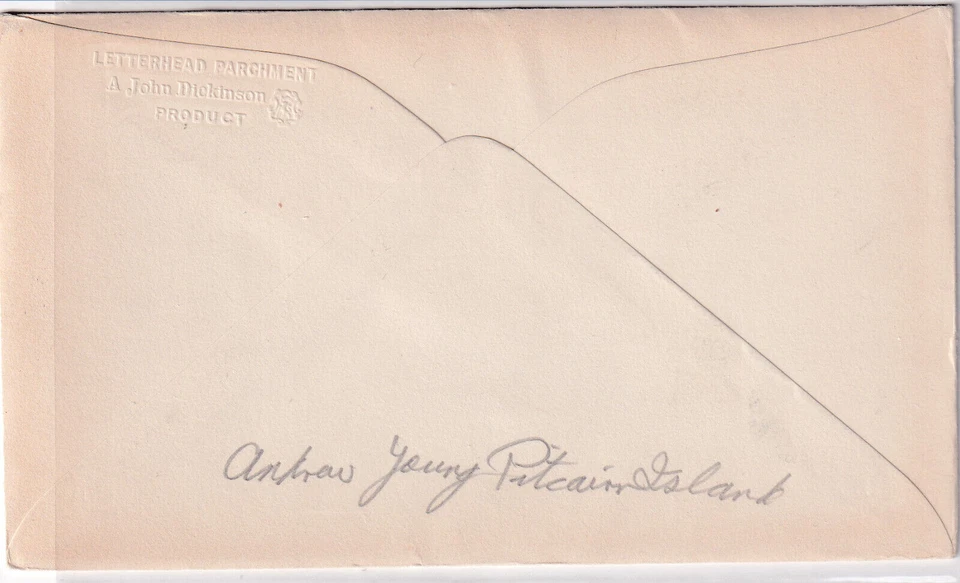 LETTERHEAD PARCHMENT
A John Dickinson
PRODUCT
Andrew Young Pitcairn Island